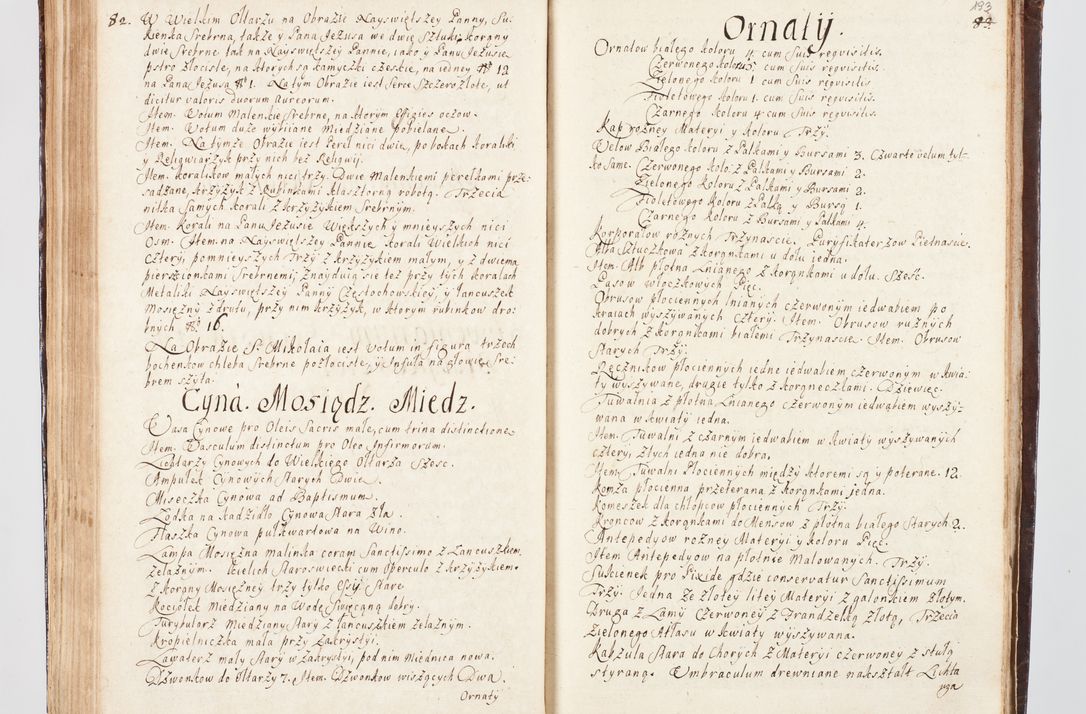 82. W Wielkim Ołtarzu na Obrazie Nayświętszey Panny, Su-
kienka Srebrna, także y Pana Jezusa we dwie Sztuki, korony
dwie Srebrne tak na Nayświętszey Pannie, iako y Panu Jezusie
pstro złociste, na ktorych są kamyczki czeskie, na iedney No 12
na Pana Jezusa No 1. Na tym Obrazie iest Serce Szczerozłote, ut
dicitur valoris duorum Aureorum.
Item. Wotum Malenkie Srebrne, na ktorym Effigies oczow.
Item. Wotum duże wybiiane Miedziane pobielane.
Item. Na tymże Obrazie iest Pereł nici dwie, po bokach koraliki
y Religwiarzyk przy nich bez Religwij.
Item. koralikow małych nici trzy. Dwie Malenkiemi perełkami prze-
sadzane, krzyżyk z Rubinkami klasztorną robotą. Trzecia
nitka samych korali z krzyżykiem Srebrnym.
Item. Korali na Panu Jezusie Większych y mnieyszych nici
Osm. Item. na Nayświętszey Pannie korali Wielkich nici
cztery, pomnieyszych Trzy z krzyżykiem małym, y z dwiema
pierścionkami Srebrnemi; znayduią się też przy tych koralach
Metaliki Nayświętszey Panny Częstochowskiey, y łancuszek
Mosiężny z drutu, przy nim krzyżyk, w ktorym rubinkow dro-
bnych No 16.
Na Obrazie S. Mikołaia iest Votum in figura trzech
bochenkow chleba Srebrne pozłociste, y Infuła na głowie Sre-
brem szyta.
Cyná. Mosiądz. Miedz.
Vasa Cynowe pro Oleis Sacris małe, cum trina distinctione
Item. Vasculum distinctum pro Oleo Infirmorum.
Lichtarzy Cynowych do Wielkiego Ołtarza Szesc.
Ampułek Cynowych Starych Dwie.
Miseczka Cynowa ad Baptismum.
Łodka na kadzidło Cynowa Stara zła.
Flaszka Cynowa pułkwardowa na Wino.
Lampa Mosiężna malinka coram Sanctissimo z Łancuszkiem
żelaznym. Kielich Staroswiecki cum Operculo z krzyżykiem
z korony Mosiężney trzy tylko Stare.
Kociołek Miedziany na Wodę Swięconą dobry.
Turybularz Miedziany Stary z łancuszkiem żelaznym.
Kropielniczka mała przy Zakrystyi.
Lawaterz mały Stary w Zakrystyi, pod nim Miednica nowa.
Dzwonkow do Ołtarzy 7. Item. Dzwonkow wiszących Dwa.
Ornaty
193
Ornatÿ.
Ornatow białego koloru 4. cum Suis reqvisitis.
Czerwonego koloru 5 cum Suis reqvisitis.
Zielonego koloru 1 cum Suis reqvisitis.
Fioletowego koloru 1. cum Suis reqvisitis.
Czarnego koloru 4 cum Suis reqvisitis.
Kap rożney Materyi y koloru Trzy.
Welow Białego koloru z Palkami y Bursami 3. Czwarte velum tyl-
ko same. Czerwonego kolo. z Palkami y Bursami 2.
Zielonego koloru z Palkami y Bursami 2.
Fioletowego koloru z Palką y Bursą 1.
Czarnego koloru z Bursami y Palkami 4.
Korporałow rożnych Trzynascie. Puryfikaterzow Piętnascie.
Alba Sztuczkowa z koronkami u dołu jedna.
Item. Alb płotna Lnianego z koronkami u dołu. Szesc.
Pasow włoczkowych Pięc.
Obrusow płociennych lnianych czerwonym iedwabiem po
kraiach wyszywanych cztery. Item. Obrusow rużnych
dobrych z koronkami białemi Trzynascie. Item. Obrusow
Starych Trzy.
Ręcznikow płociennych iedne iedwabiem czerwonym w kwia-
ty wyszywane, drugie tylko z koroneczkami. Dziewięc.
Tuwalnia z płotna Lnianego czerwonym iedwabiem wyszy-
wana w kwiaty iedna.
Item. Tuwalni z czarnym iedwabiem w kwiaty wyszywanych
cztery, z tych iedna nie dobra.
Item. Tuwalni Płociennych między ktoremi są y poterane. 12.
Komża płocienna przeterana z koronkami jedna.
Komeszek dla chłopcow płociennych Trzy.
Froncow z koronkami do Mensow z płotna białego Starych 2.
Antepedyow rożney Materyi y koloru Pięc.
Item Antepedyow na płotnie Malowanych. Trzy.
Sukienek pro Pixide gdzie conservatur Sanctissimum
Trzy. Jedna ze złotey litey Materyi z galonkiem złotym.
Druga z Lamy Czerwoney z Frandzelką złotą, Trzecia
zielonego Atłasu w kwiaty wyszywana.
Kapzula Stara do Chorych z Materyi czerwoney z stułą
styraną. Umbraculum drewniane nakształt Lichta